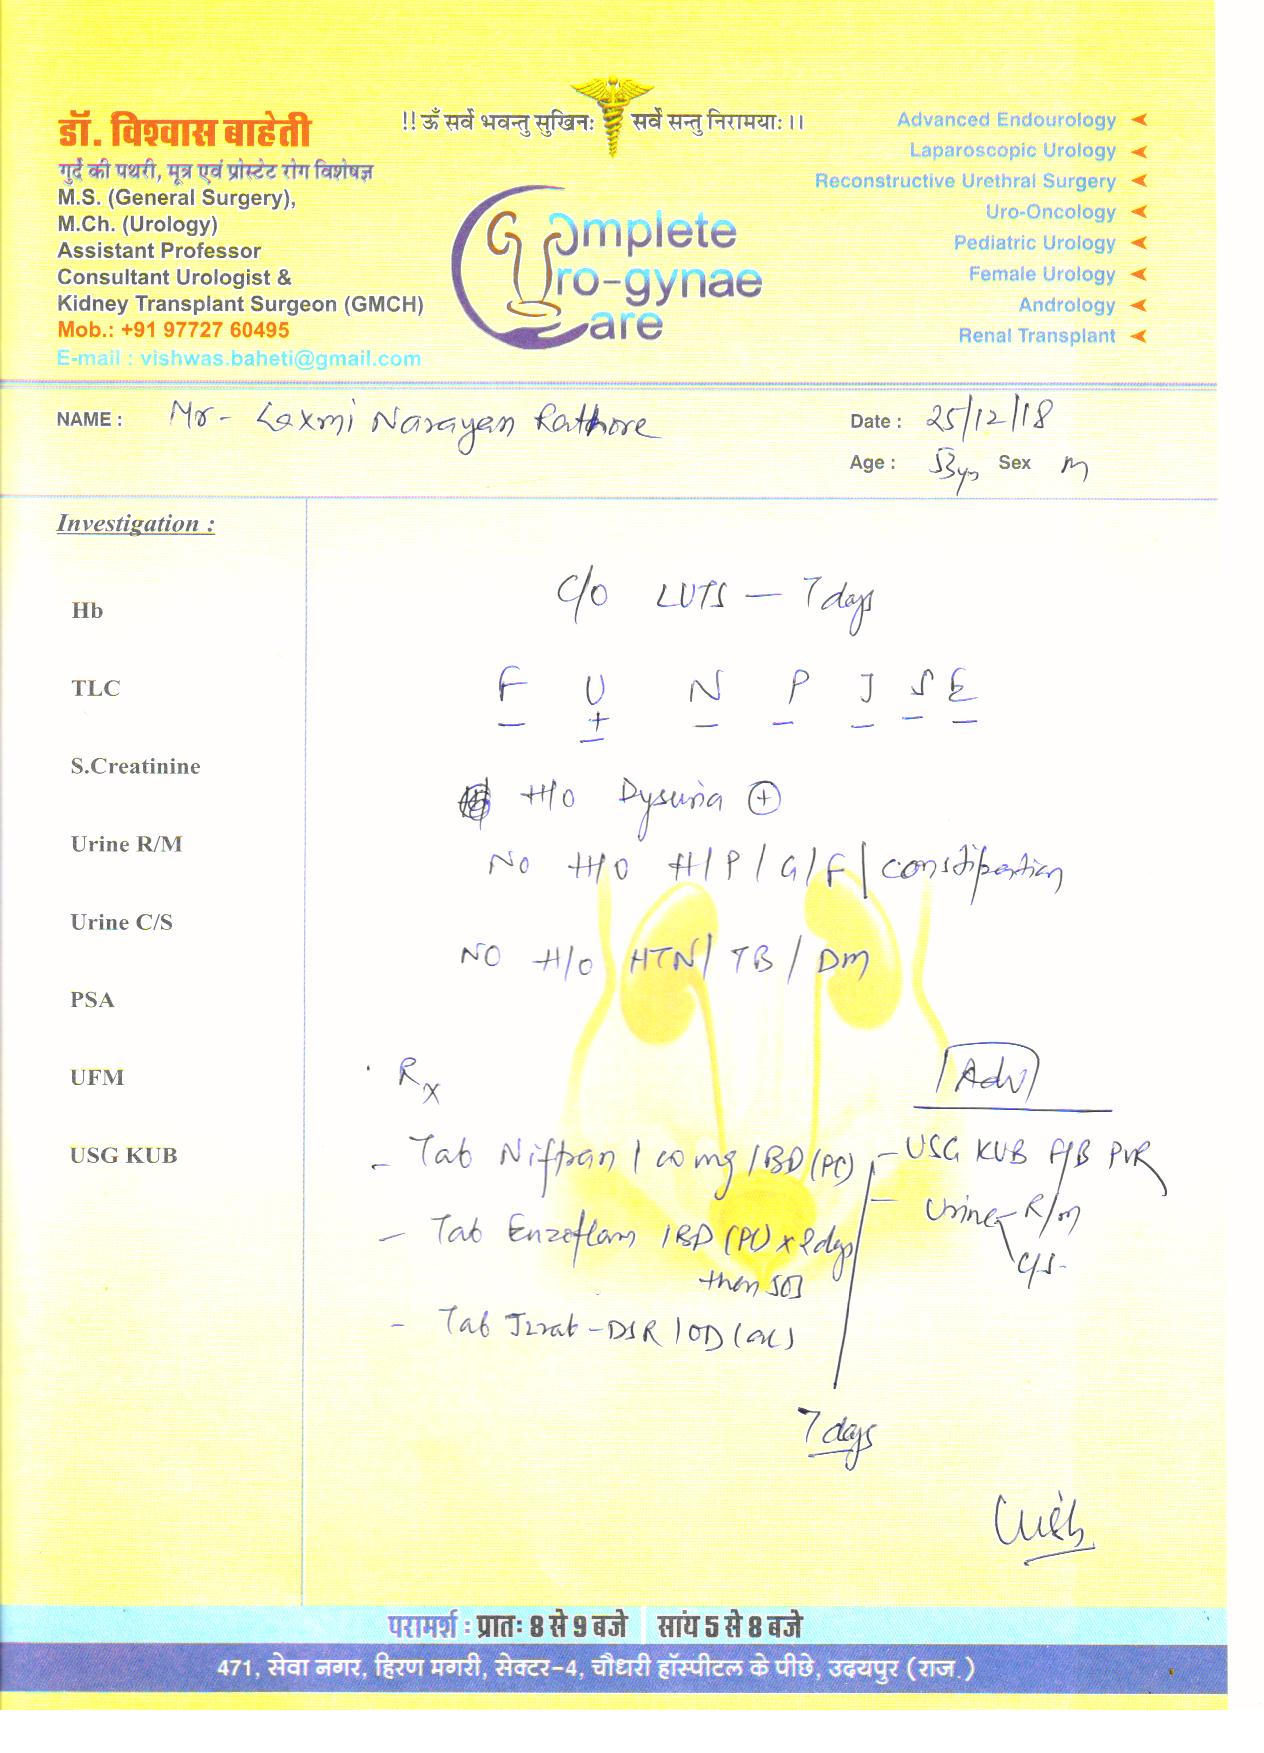 !! ॐ सर्वे भवन्तु सुखिनः सर्वे सन्तु निरामयाः ।।
डॉ. विश्वास बाहेती
गुर्दे की पथरी, मूत्र एवं प्रोस्टेट रोग विशेषज्ञ
M.S. (General Surgery),
M.Ch. (Urology)
Assistant Professor
Consultant Urologist &
Kidney Transplant Surgeon (GMCH)
Mob.: +91 97727 60495
E-mail : vishwas.baheti@gmail.com
Complete
Uro-gynae
Care
Advanced Endourology
Laparoscopic Urology
Reconstructive Urethral Surgery
Uro-Oncology
Pediatric Urology
Female Urology
Andrology
Renal Transplant
NAME : Mr - Laxmi Narayan Rathore
Date : 25/12/18
Age : 53yrs Sex M
Investigation :
Hb
TLC
S.Creatinine
Urine R/M
Urine C/S
PSA
UFM
USG KUB
C/O LUTS — 7 days
F U N P I S E
– + – – – – –
–
H/O Dysuria ⊕
NO H/O H/P/G/F/constipation
NO H/O HTN/TB/DM
Rx
- Tab Niftran 100 mg 1BD (PC)
- Tab Enzoflam 1BD (PC) x 2 days
then SOS
- Tab -DSR 1OD (ac)
7 days
Adv
- USG KUB PVR
- Urine - R/M
C/S -
परामर्श : प्रातः 8 से 9 बजे | सांय 5 से 8 बजे
471, सेवा नगर, हिरण मगरी, सेक्टर-4, चौधरी हॉस्पीटल के पीछे, उदयपुर (राज.)